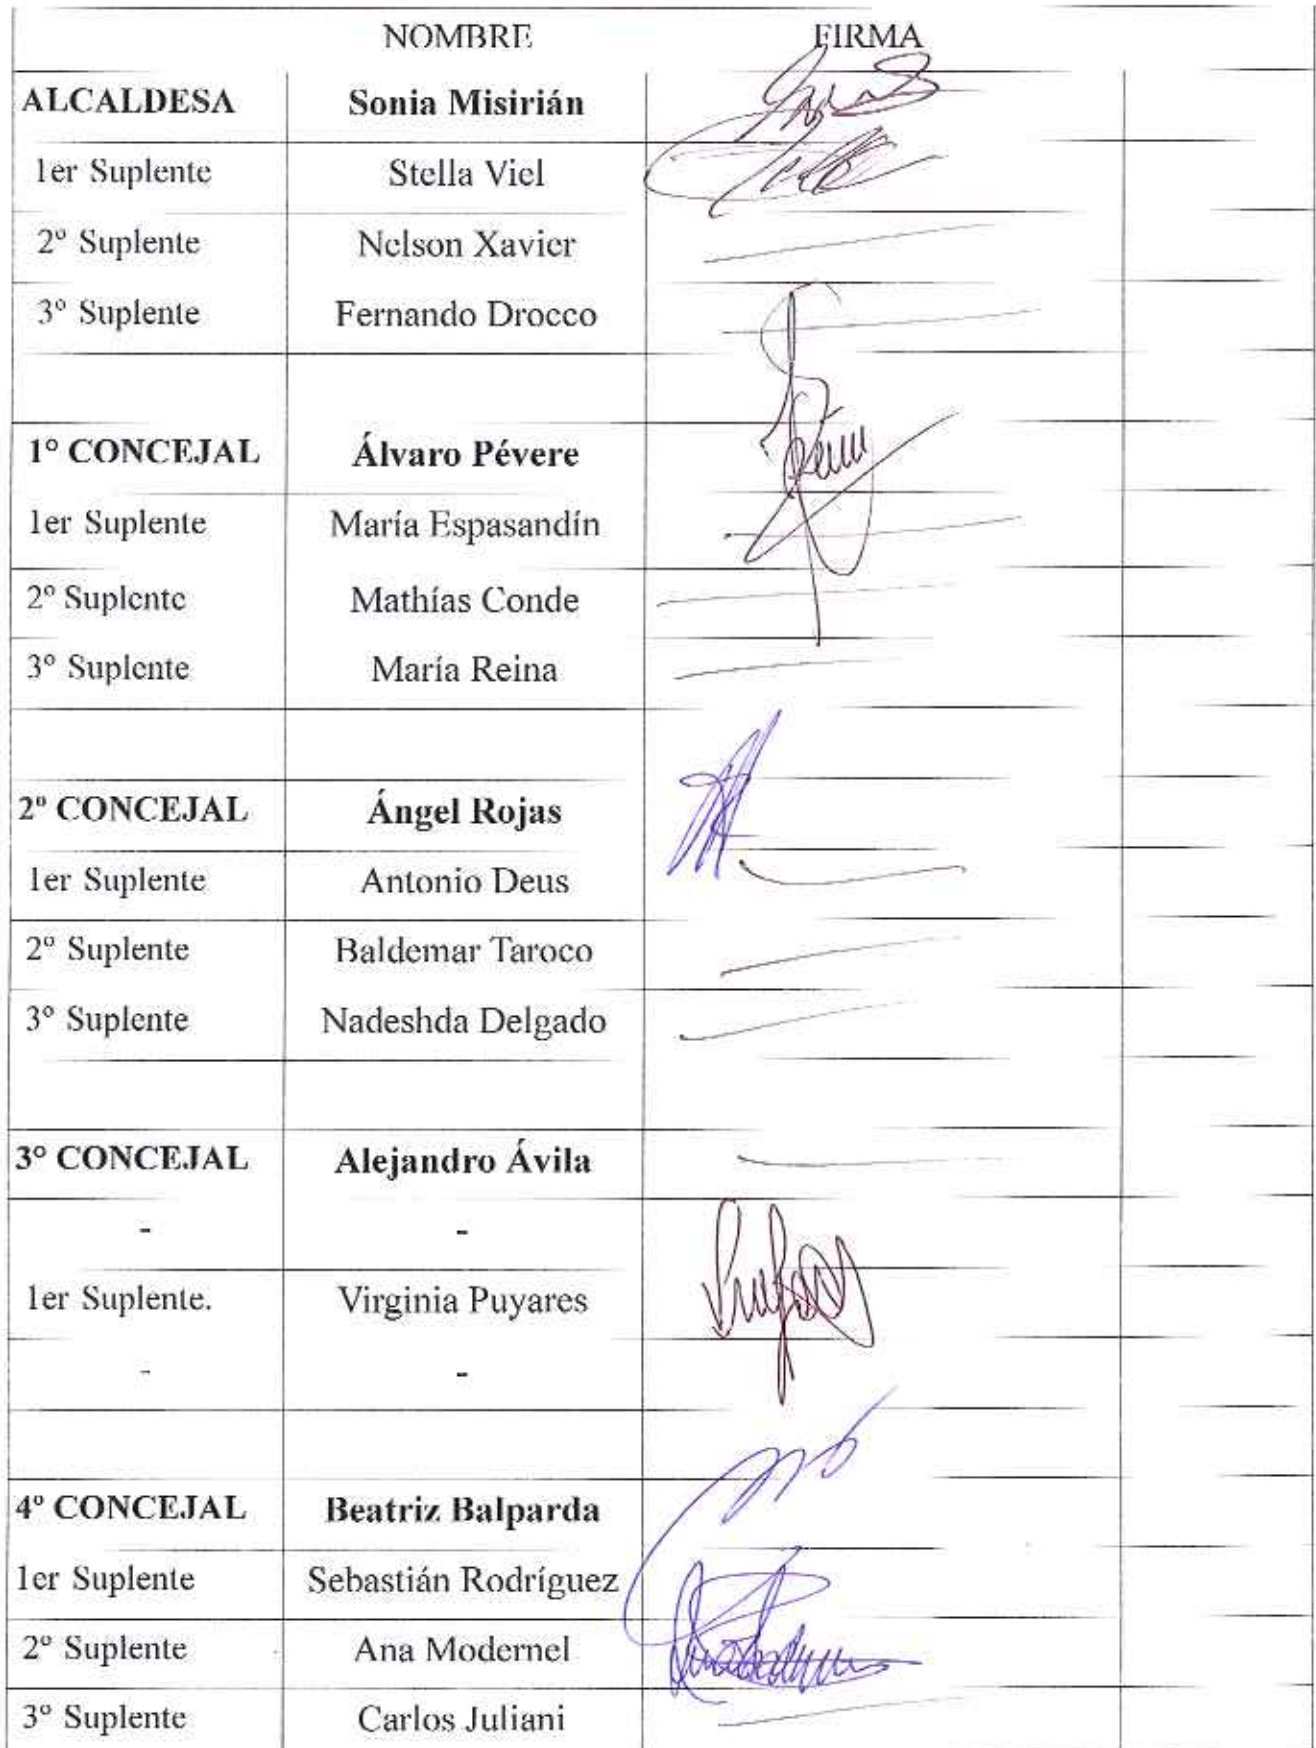 NOMBRE FIRMA
ALCALDESA Sonia Misirián
1er Suplente Stella Viel
2º Suplente Nelson Xavier
3º Suplente Fernando Drocco
1º CONCEJAL Álvaro Pévere
1er Suplente María Espasandín
2º Suplente Mathías Conde
3º Suplente María Reina
2º CONCEJAL Ángel Rojas
1er Suplente Antonio Deus
2º Suplente Baldemar Taroco
3º Suplente Nadeshda Delgado
3º CONCEJAL Alejandro Ávila
- -
1er Suplente. Virginia Puyares
- -
4º CONCEJAL Beatriz Balparda
1er Suplente Sebastián Rodríguez
2º Suplente Ana Modernel
3º Suplente Carlos Juliani